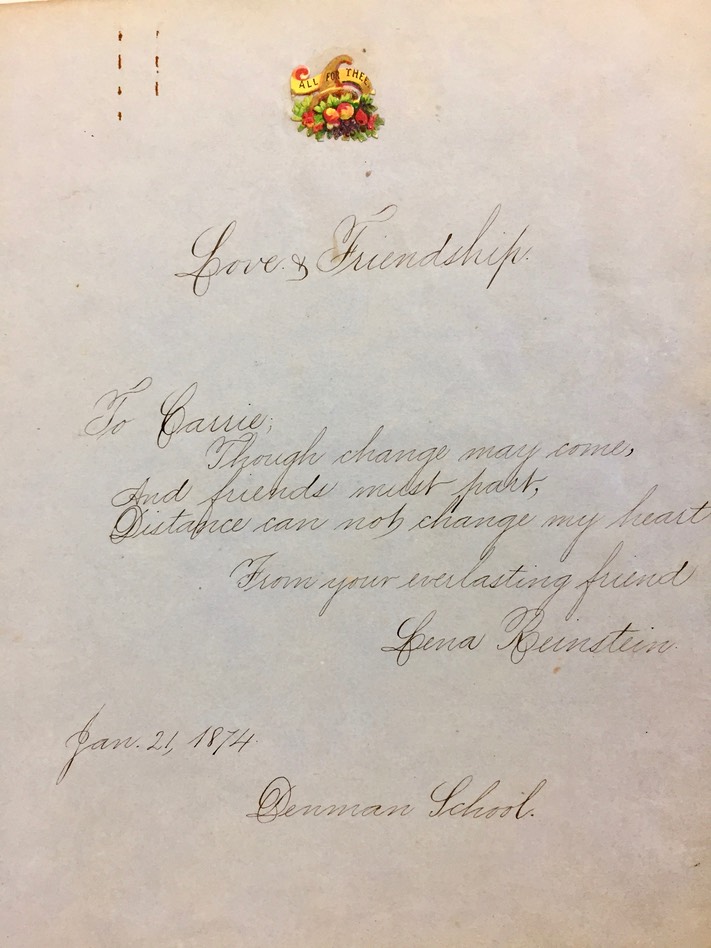 ALL FOR THEE
Love & Friendship.
To Carrie;
Though change may come,
And friends must part,
Distance can not change my heart
From your everlasting friend
Lena Reinstein.
Jan. 21, 1874.
Denman School.